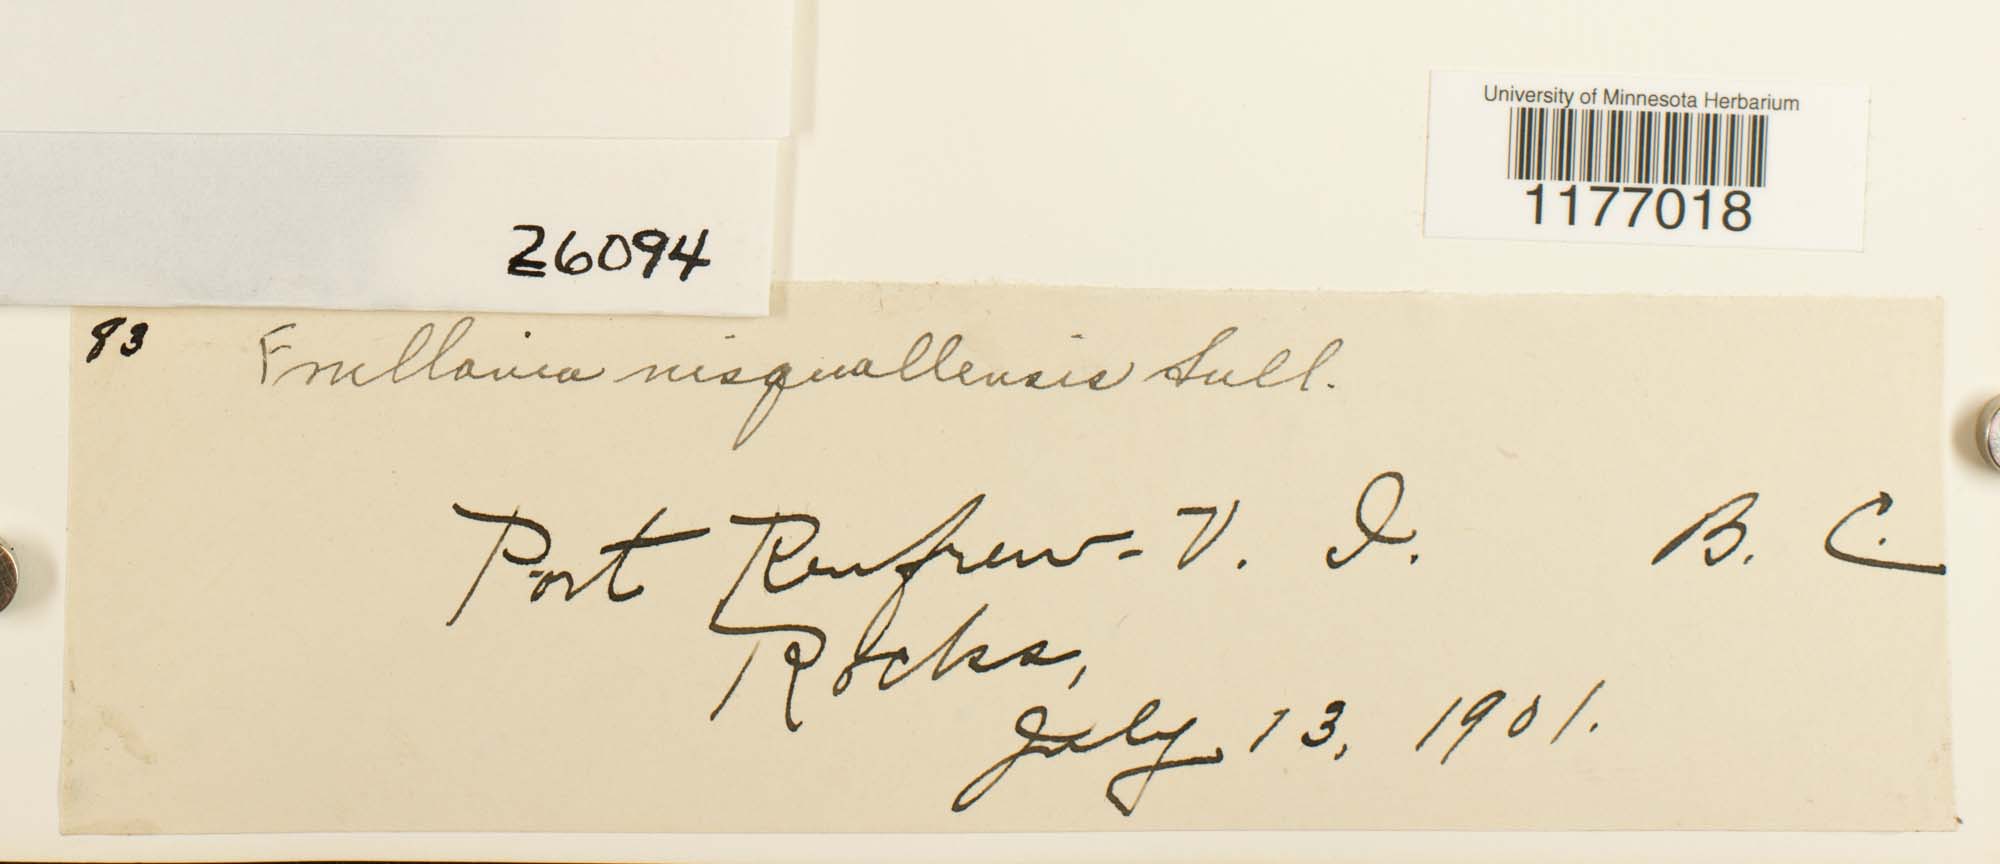 University of Minnesota Herbarium
1177018
26094
83 Frullania nisquallensis Sull.
Port Renfrew - V. I. B. C.
Rocks,
July 13, 1901.